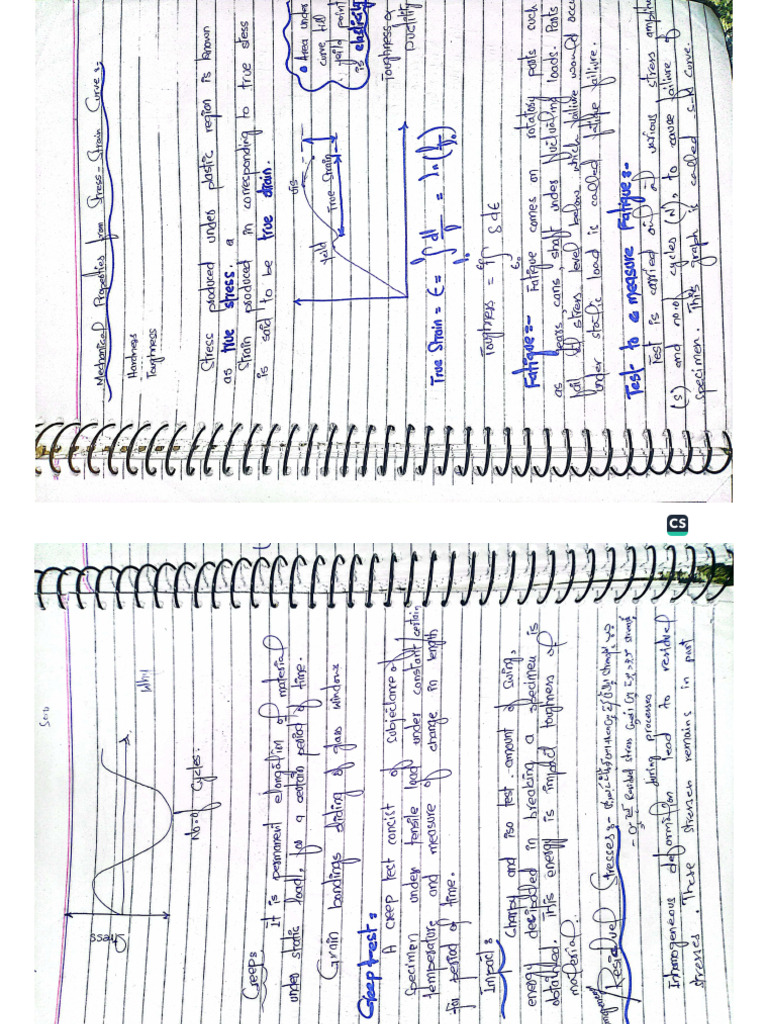 Mechanical Properties from Stress-Strain Curve:
Hardness
Toughness
Stress produced under plastic region is known
as true stress. a
Strain produced in corresponding to true stess
is said to be true strain.
UTS
yield
True Strain
Area under
curve till
yeild point
is elasticity
Toughness or
Ductility
True Strain = ε = ∫ dl/l = ln (l/l₀)
Toughness = ∫ S dε
Fatigue:- Fatigue comes on rotatory parts such
as gears, cams, shaft under fluctuating loads. Parts
fail at stress level below which failure would occu
under static load is called fatigue failure.
Test to measure Fatigue:-
Test is carried out at various stress amplitu
(S) and no. of cycles (N), to cause failure of
specimen. This graph is called S-N Curve.
CS
Stress
No. of Cycles:
Creep:
It is permanent elongation of material
under static load, for a certain period of time.
Grain bondings sliding of glass windows
Creep test:
A creep test concist of subjectance of
specimen under tensile load under constant certain
temperature and measure of change in length
for period of time.
Impact:
Charpy and iso test. amount of swing,
energy desipated in breaking a specimen is
obtained. This energy is impact toughness of
material.
Residual Stresses:-
Inhomogeneous deformation during processes lead to residual
stresses. These stresses remains in part